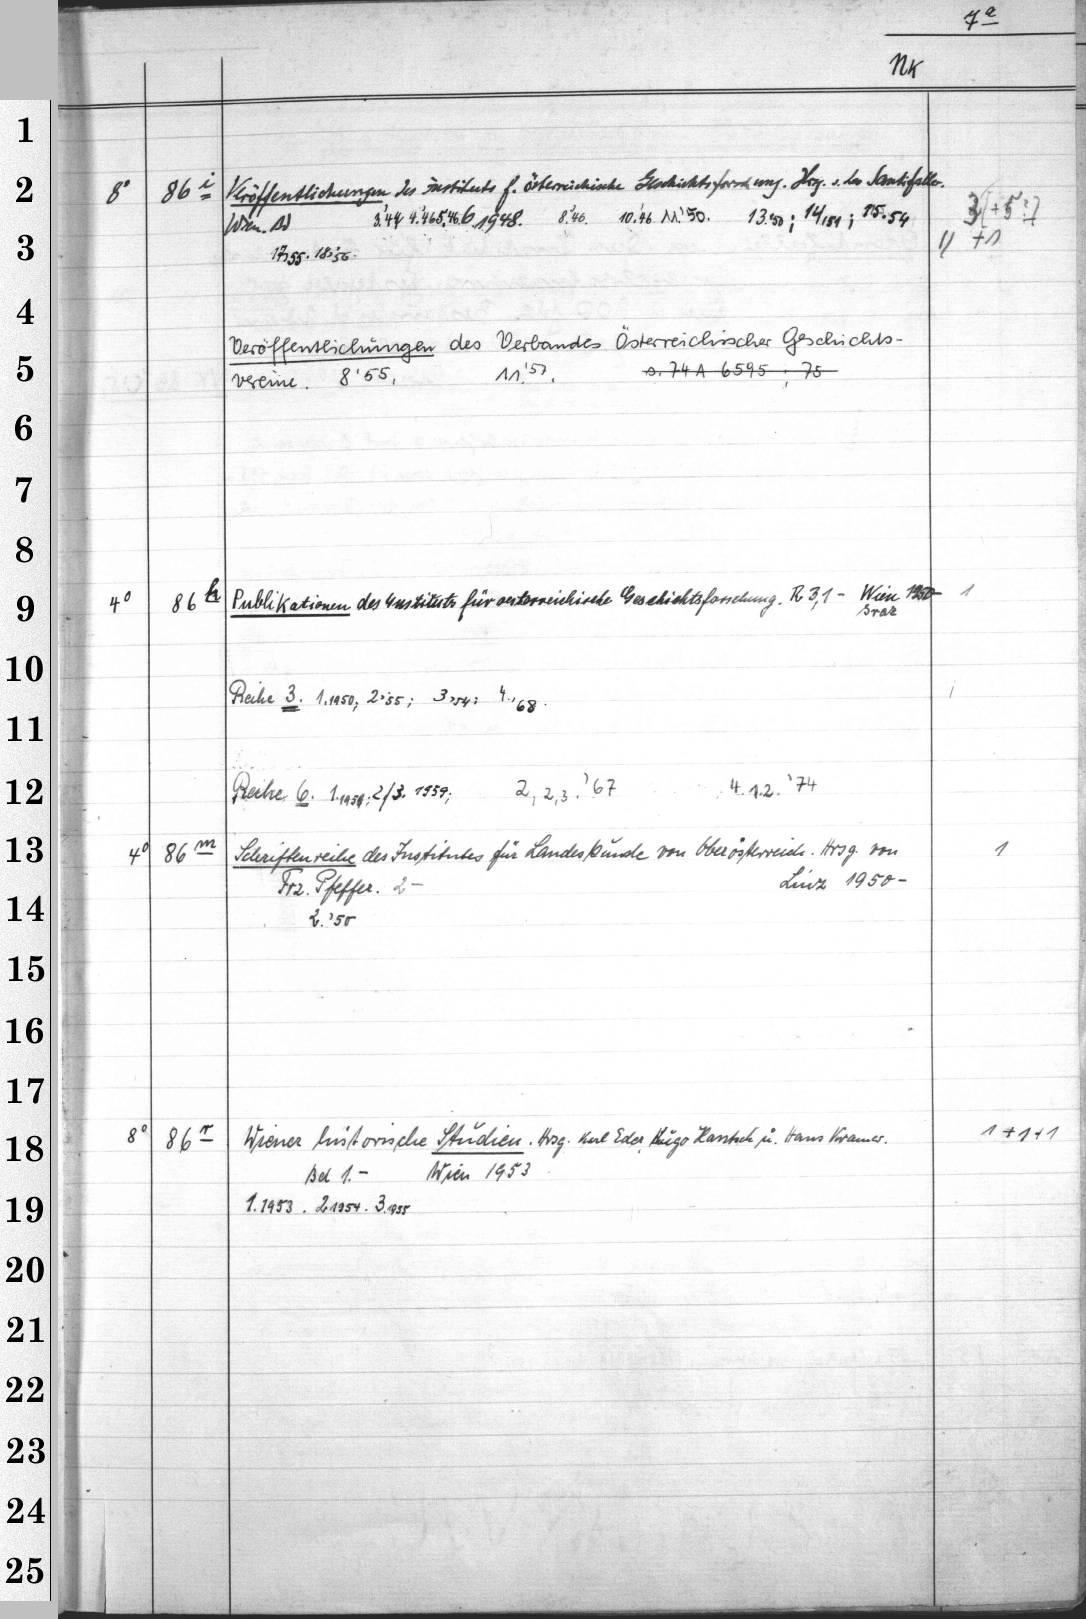 7a
NK
1
2 8° 86 i Veröffentlichungen des Instituts f. österreichische Geschichtsforschung. Hrg. v. Leo Santifaller.
Wien. Bd 3.'44 4.'46 5.'46. 6.1948. 8.'46. 10.'46. 11.'50. 13.'50; 14/'54; 15.54 3[+5?]
3 17,55. 18,'56. 1/ +1
4
Veröffentlichungen des Verbandes Österreichischer Geschichts-
5 vereine. 8'55, 11.'57. s. 74 A 6595 ; 75
6
7
8
9 4° 86 k Publikationen des Instituts für oesterreichische Geschichtsforschung. R 3,1 - Wien 1950- 1
Graz
10
Reihe 3. 1.1950; 2,'55; 3,'54; 4.,'68.
11
12 Reihe 6. 1.1951; 2/3. 1959; 2, 2,3.'67 4.1.2.'74
13 4° 86 m Schriftenreihe des Institutes für Landeskunde von Oberösterreich. Hrsg. von 1
Frz. Pfeffer. 2- Linz 1950-
14 2.'50
15
16
17
18 8° 86 r Wiener historische Studien. Hrsg. Karl Eder, Hugo Hantsch u. Hans Kramer. 1+1+1
Bd 1.- Wien 1953
19 1.1953. 2 1954. 3.1955
20
21
22
23
24
25